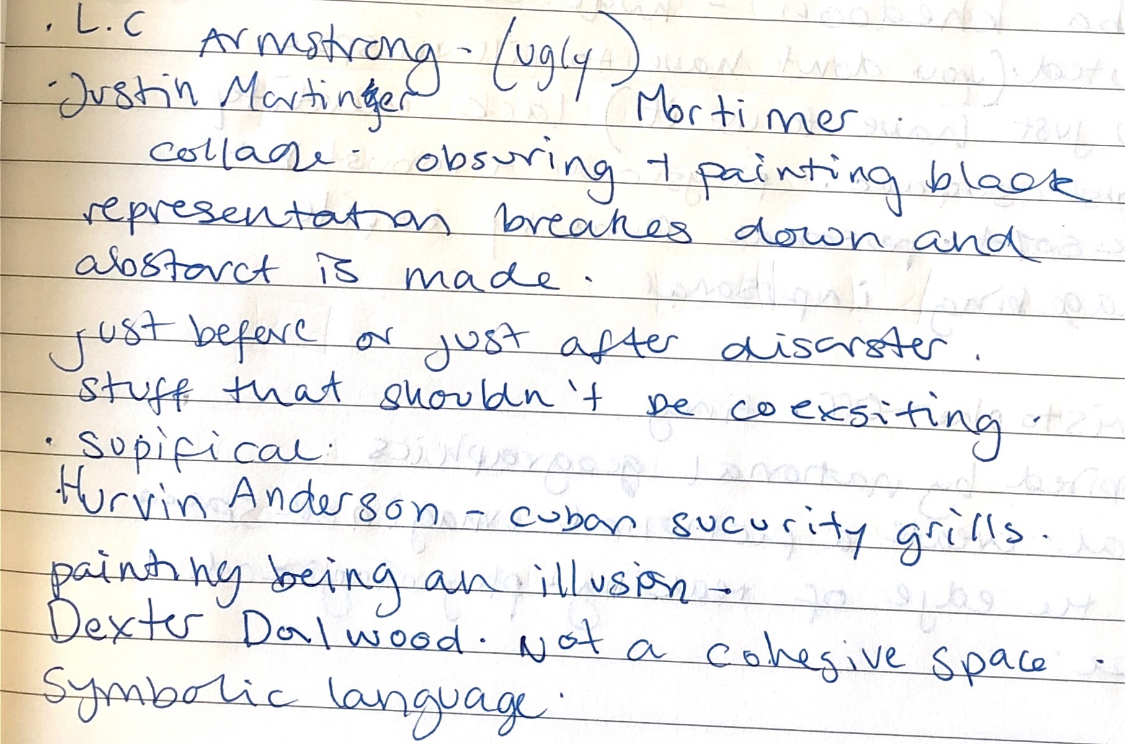 . L.C Armstrong - (ugly)
. Justin Martinger Mortimer .
collage - obsuring + painting black
representaton breakes down and
abstarct is made.
just before or just after disarster.
stuff that shouldn't be coexsiting.
. sopifical.
Hurvin Anderson - cuban sucurity grills.
painting being an illusion -
Dexter Dalwood. Not a cohesive space.
Symbolic language.